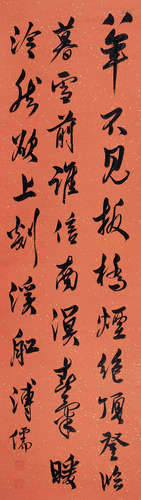 八年不見板橋煙絕頂登臨
暮雪前誰信南溟春氣暖
泠然欲上剡溪船溥儒